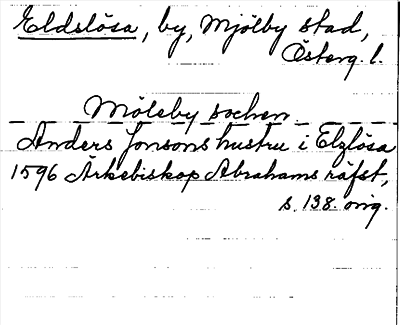 Eldslösa, by, Mjölby stad,
Österg. l.
Möleby sochen
Anders Jonsons hustru i Elzlösa
1596 Ärkebiskop Abrahams räfst,
s. 138. orig.